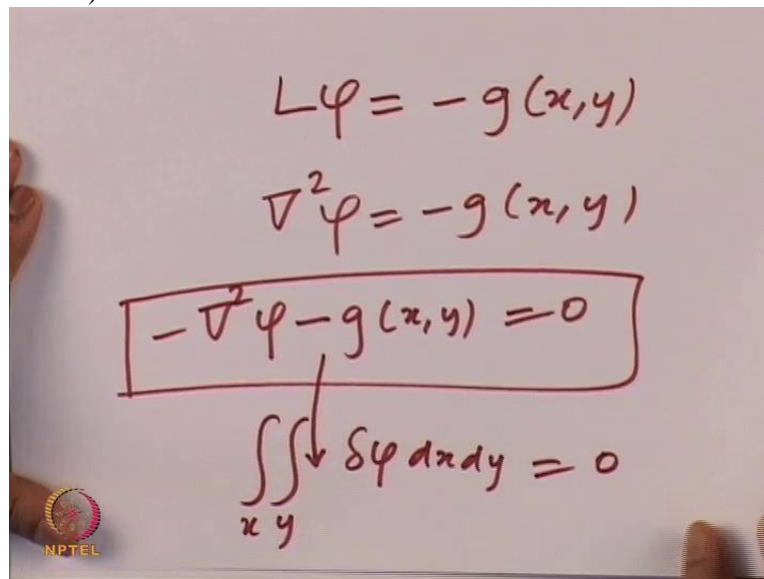 )
Lφ = - g(x,y)
∇²φ = - g(x,y)
-∇²φ - g(x,y) = 0
∬↓ δφ dx dy = 0
x y
NPTEL